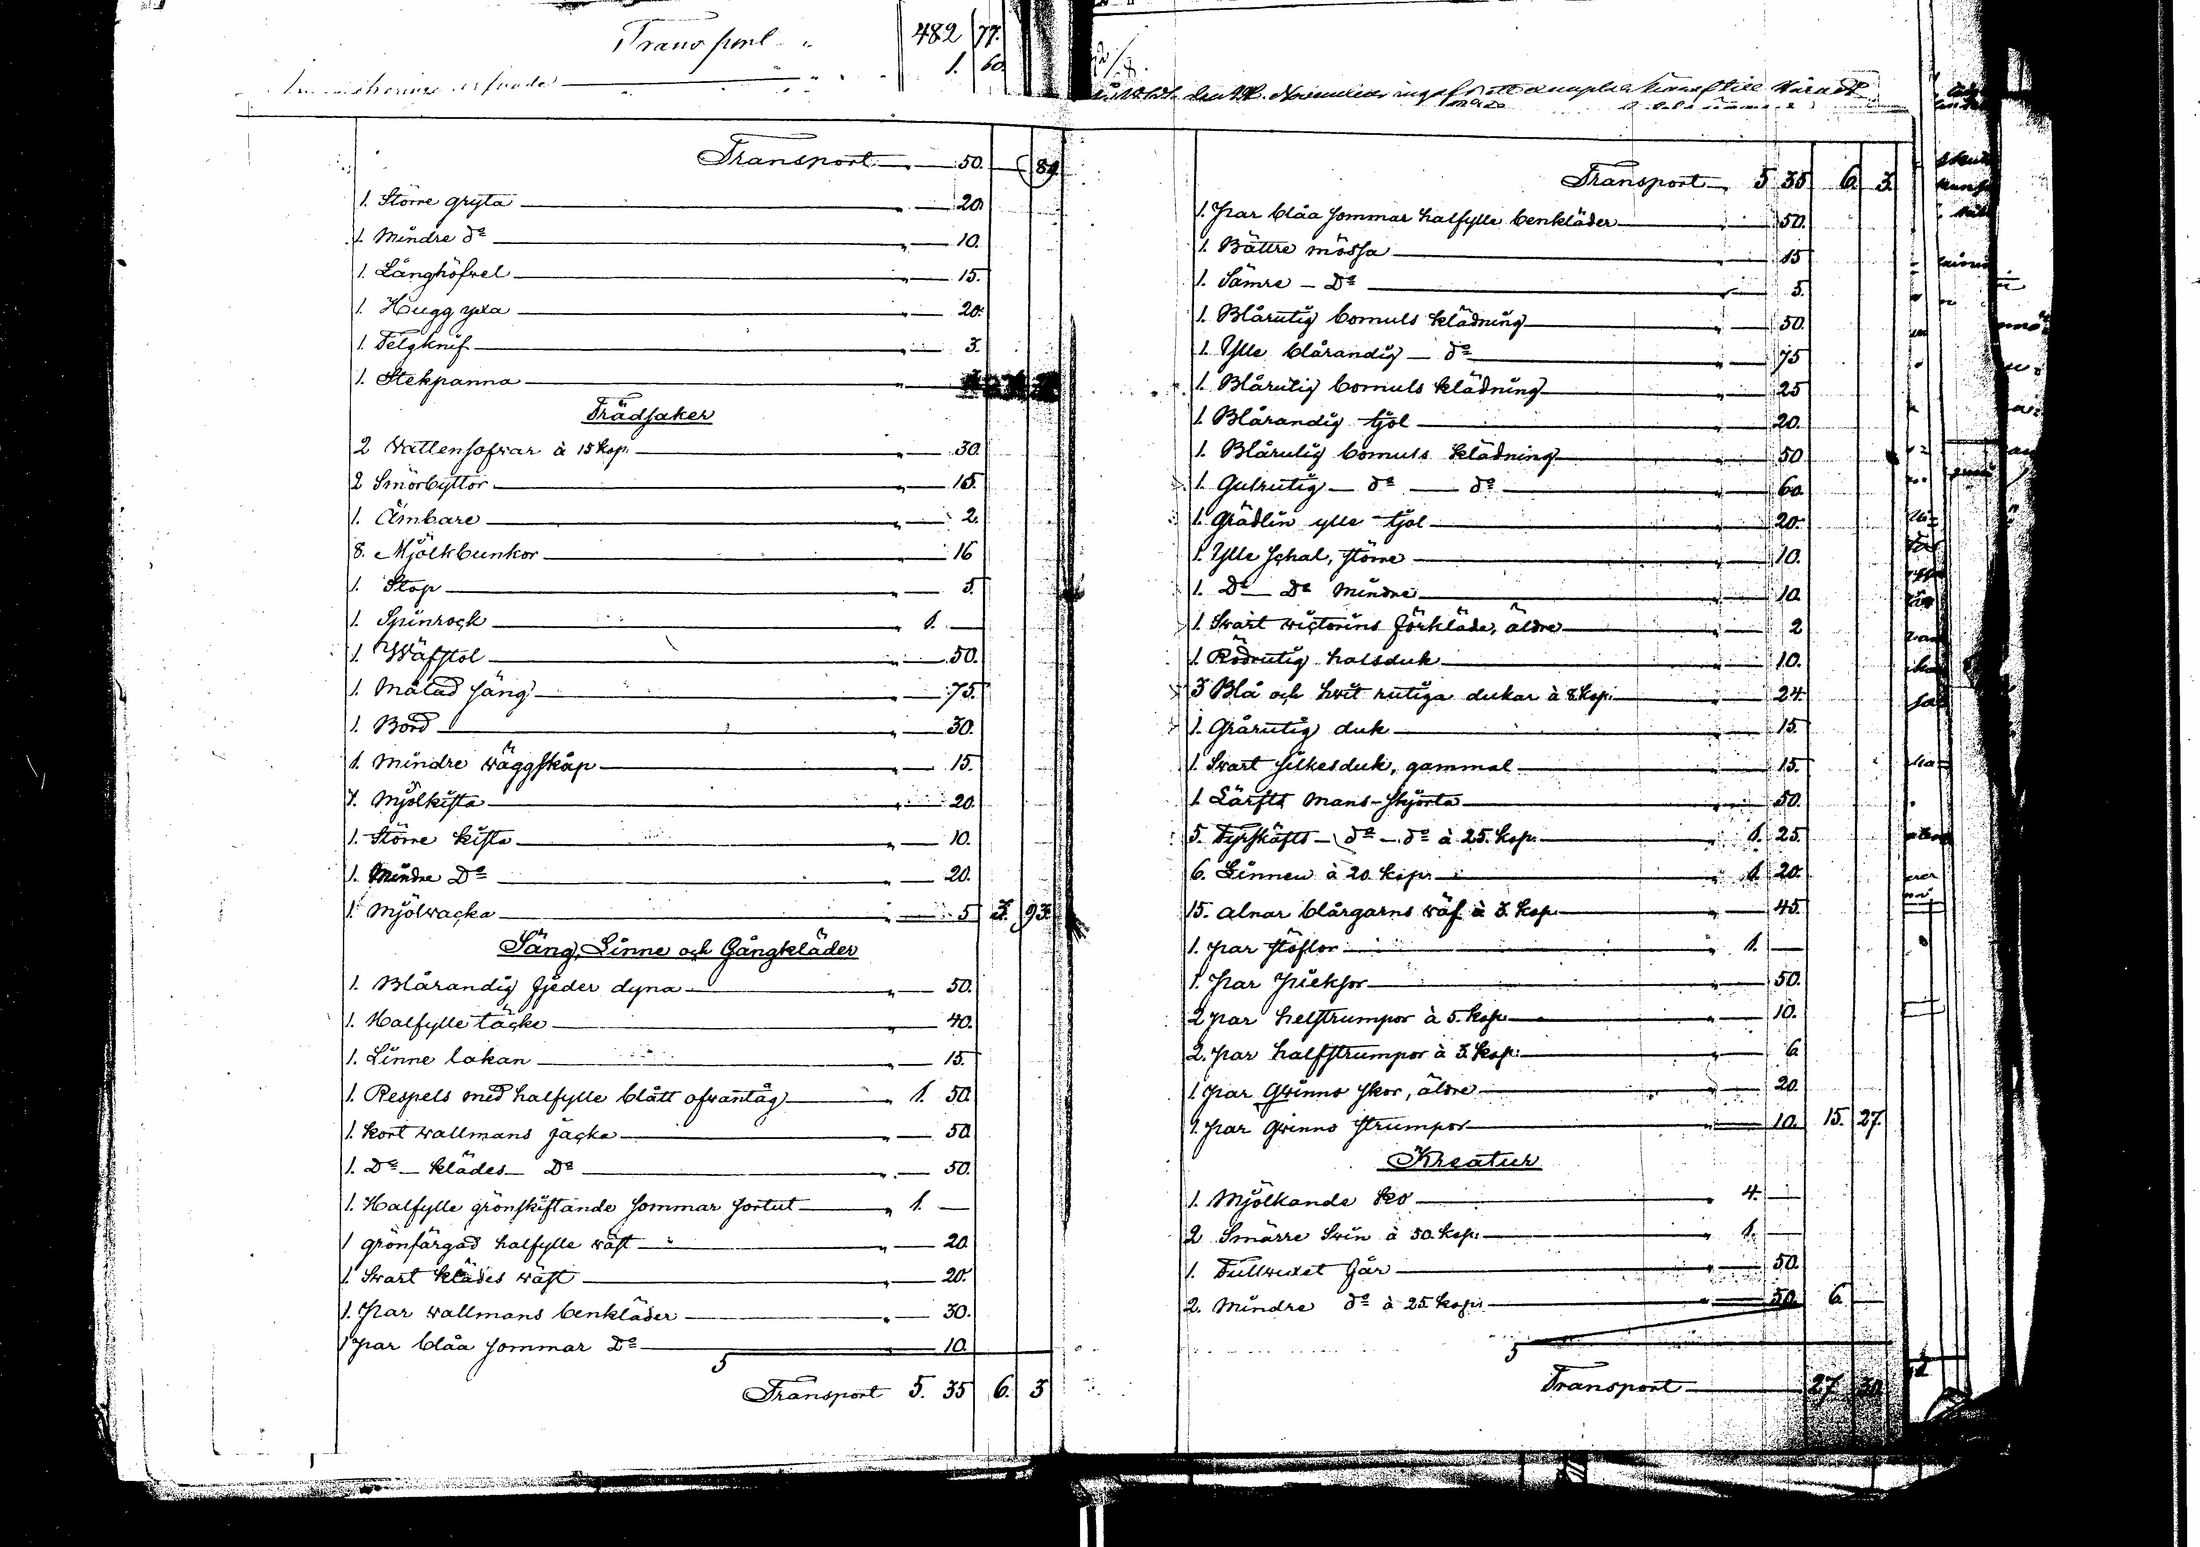 Transport " 482 77.
1. 60.
Transport " — 50. — 89
1. Större gryta " — 20.
1. Mindre do " — 10.
1. Långhöfvel " — 15.
1. Hugg yxa " — 20.
1. Telgknif " — 3.
1. Stekpanna " —
Trädsaker
2 Wattensofwar à 15 kop. " — 30.
2 Smörbyttor " — 15.
1. Ämbare " — 2.
8. Mjölkbunkor " — 16
1. Stop " — 5.
1. Spinrock " 1. —
1. Wäfstol " — 50.
1. Målad säng " — 75.
1. Bord " — 30.
1. Mindre wäggskåp " — 15.
1. Mjölkista " — 20.
1. Större kista " — 10.
1. Mindre Do " — 20.
1. Mjölwacka " — 5 3. 93.
Säng, Linne och Gångkläder
1. Blårandig fjeder dyna " — 50.
1. Halfylle täcke " — 40.
1. Linne lakan " — 15.
1. Respels med halfylle blått ofwantåg " 1. 50.
1. Kort wallmans jacka " — 50.
1. Do — klädes — Do " — 50.
1. Halfylle grönskiftande sommar sortut " 1. —
1 grönfärgad halfylle wäst " — 20.
1. Swart klädes wäst " — 20.
1. Par wallmans benkläder " — 30.
1 par blåa sommar Do — 10.
5
Transport 5. 35 6. 3
Transport " 5 35 6. 3.
1. Par blåa sommar halfylle benkläder " — 50.
1. Bättre mössa " — 15
1. Sämre — Do " — 5.
1. Blårutig bomuls klädning " — 50.
1. Ylle blårandig — do " — 75
1. Blårutig bomuls klädning " — 25
1. Blårandig kjol " — 20.
1. Blårutig bomuls klädning " — 50
1. Gulrutig — do — do " — 60.
1. Grädlin ylle kjol " — 20.
1. Ylle schal, större " — 10.
1. Do — Do Mindre " — 10.
1. Swart wictorins förkläde, äldre " — 2
1. Rödrutig halsduk " — 10.
3 Blå och hwit rutiga dukar à 8 kop. " — 24.
1. Grårutig duk " — 15.
1. Swart silkesduk, gammal " — 15.
1. Lärfts mans-skjorta " — 50.
5. Fyrskäfts — do — do à 25. kop. " 1. 25.
6. Linnen à 20. kop. " 1. 20.
15. alnar blårgarns wäf à 3. kop. " — 45.
1. par stöflor " 1. —
1. Par pieksor " — 50.
2 par helstrumpor à 5. kop. " — 10.
2. par halfstrumpor à 3. kop. " — 6
1. par Qwinno skor, äldre " — 20
1. par Qwinno strumpor " — 10. 15. 27.
Kreatur
1. Mjölkande ko " 4. —
2 Smärre Swin à 50. kop. " 1. —
1. Fullwuxet får " — 50.
2. Mindre do à 25. kop. " — 50. 6. —
5
Transport — 27. 30.